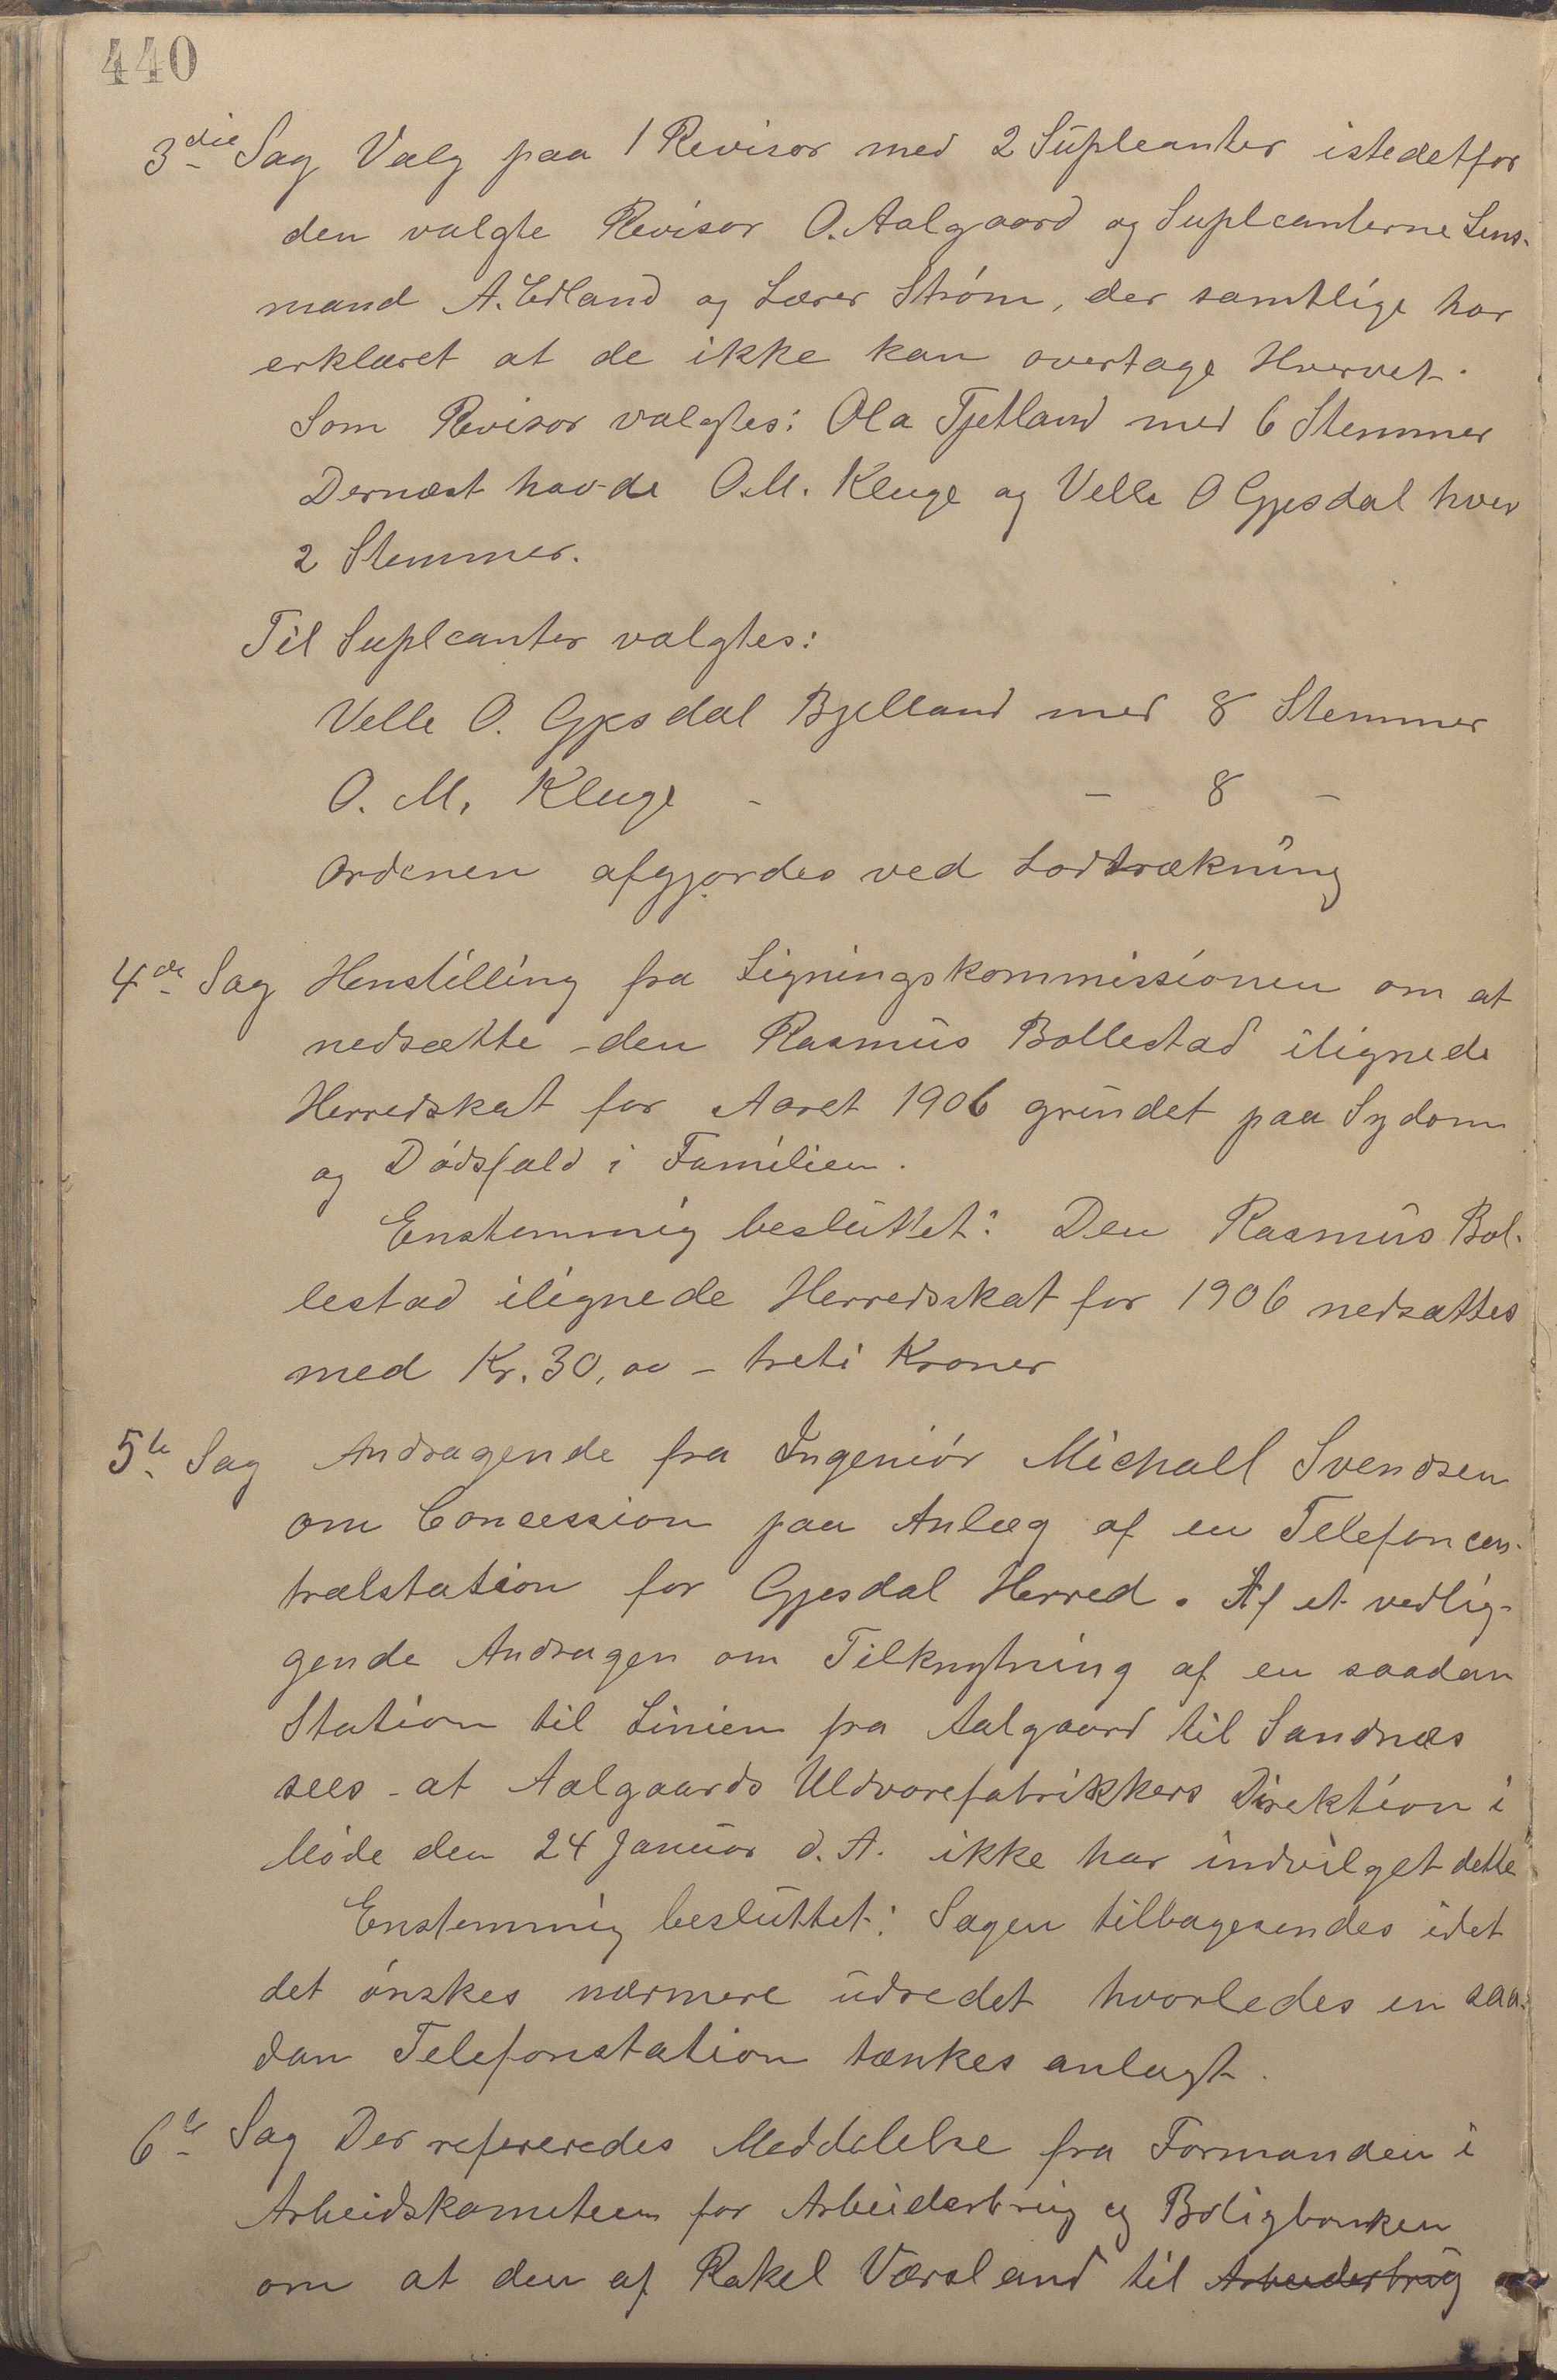 440
3die Sag Valg paa 1 Revisor med 2 Supleanter istedetfor
den valgte Revisor O. Aalgaard og Supleanterne Lens-
mand A. Edland og Lærer Strøm, der samtlige har
erklæret at de ikke kan overtage Hvervet.
Som Revisor valgtes: Ola Tjetland med 6 Stemmer
Dernæst havde O. M. Kluge og Velle O Gjesdal hver
2 Stemmer.
Til Supleanter valgtes:
Velle O. Gjesdal Bjelland med 8 Stemmer
O. M. Kluge - - 8 -
Ordenen afgjordes ved Lodtrækning
4de Sag Henstilling fra Ligningskommissionen om at
nedsætte den Rasmus Bollestad ilignede
Herredskat for Aaret 1906 grundet paa Sydom
og Dødsfald i Familien.
Enstemmig besluttet: Den Rasmus Bol-
lestad ilignede Herredsskat for 1906 nedsættes
med Kr. 30,00 - treti Kroner
5te Sag Andragende fra Ingeniør Michall Svendsen
om Concession paa Anlæg af en Telefoncen-
tralstation for Gjesdal Herred. Af et vedlig-
gende Andragen om Tilknytning af en saadan
Station til Linien fra Aalgaard til Sandnæs
sees at Aalgaards Uldvarefabrikkers Direktion i
Møde den 24 Januar d. A. ikke har indvilget dette
Enstemmig besluttet: Sagen tilbagesendes idet
det ønskes nærmere udredet hvorledes en saa-
dan Telefonstation tænkes anlagt.
6te Sag Der refereredes Meddelelse fra Formanden i
Arbeidskomiteen for Arbeiderbrug og Boligbanken
om at den af Rakel Værsland til Arbeiderbrug